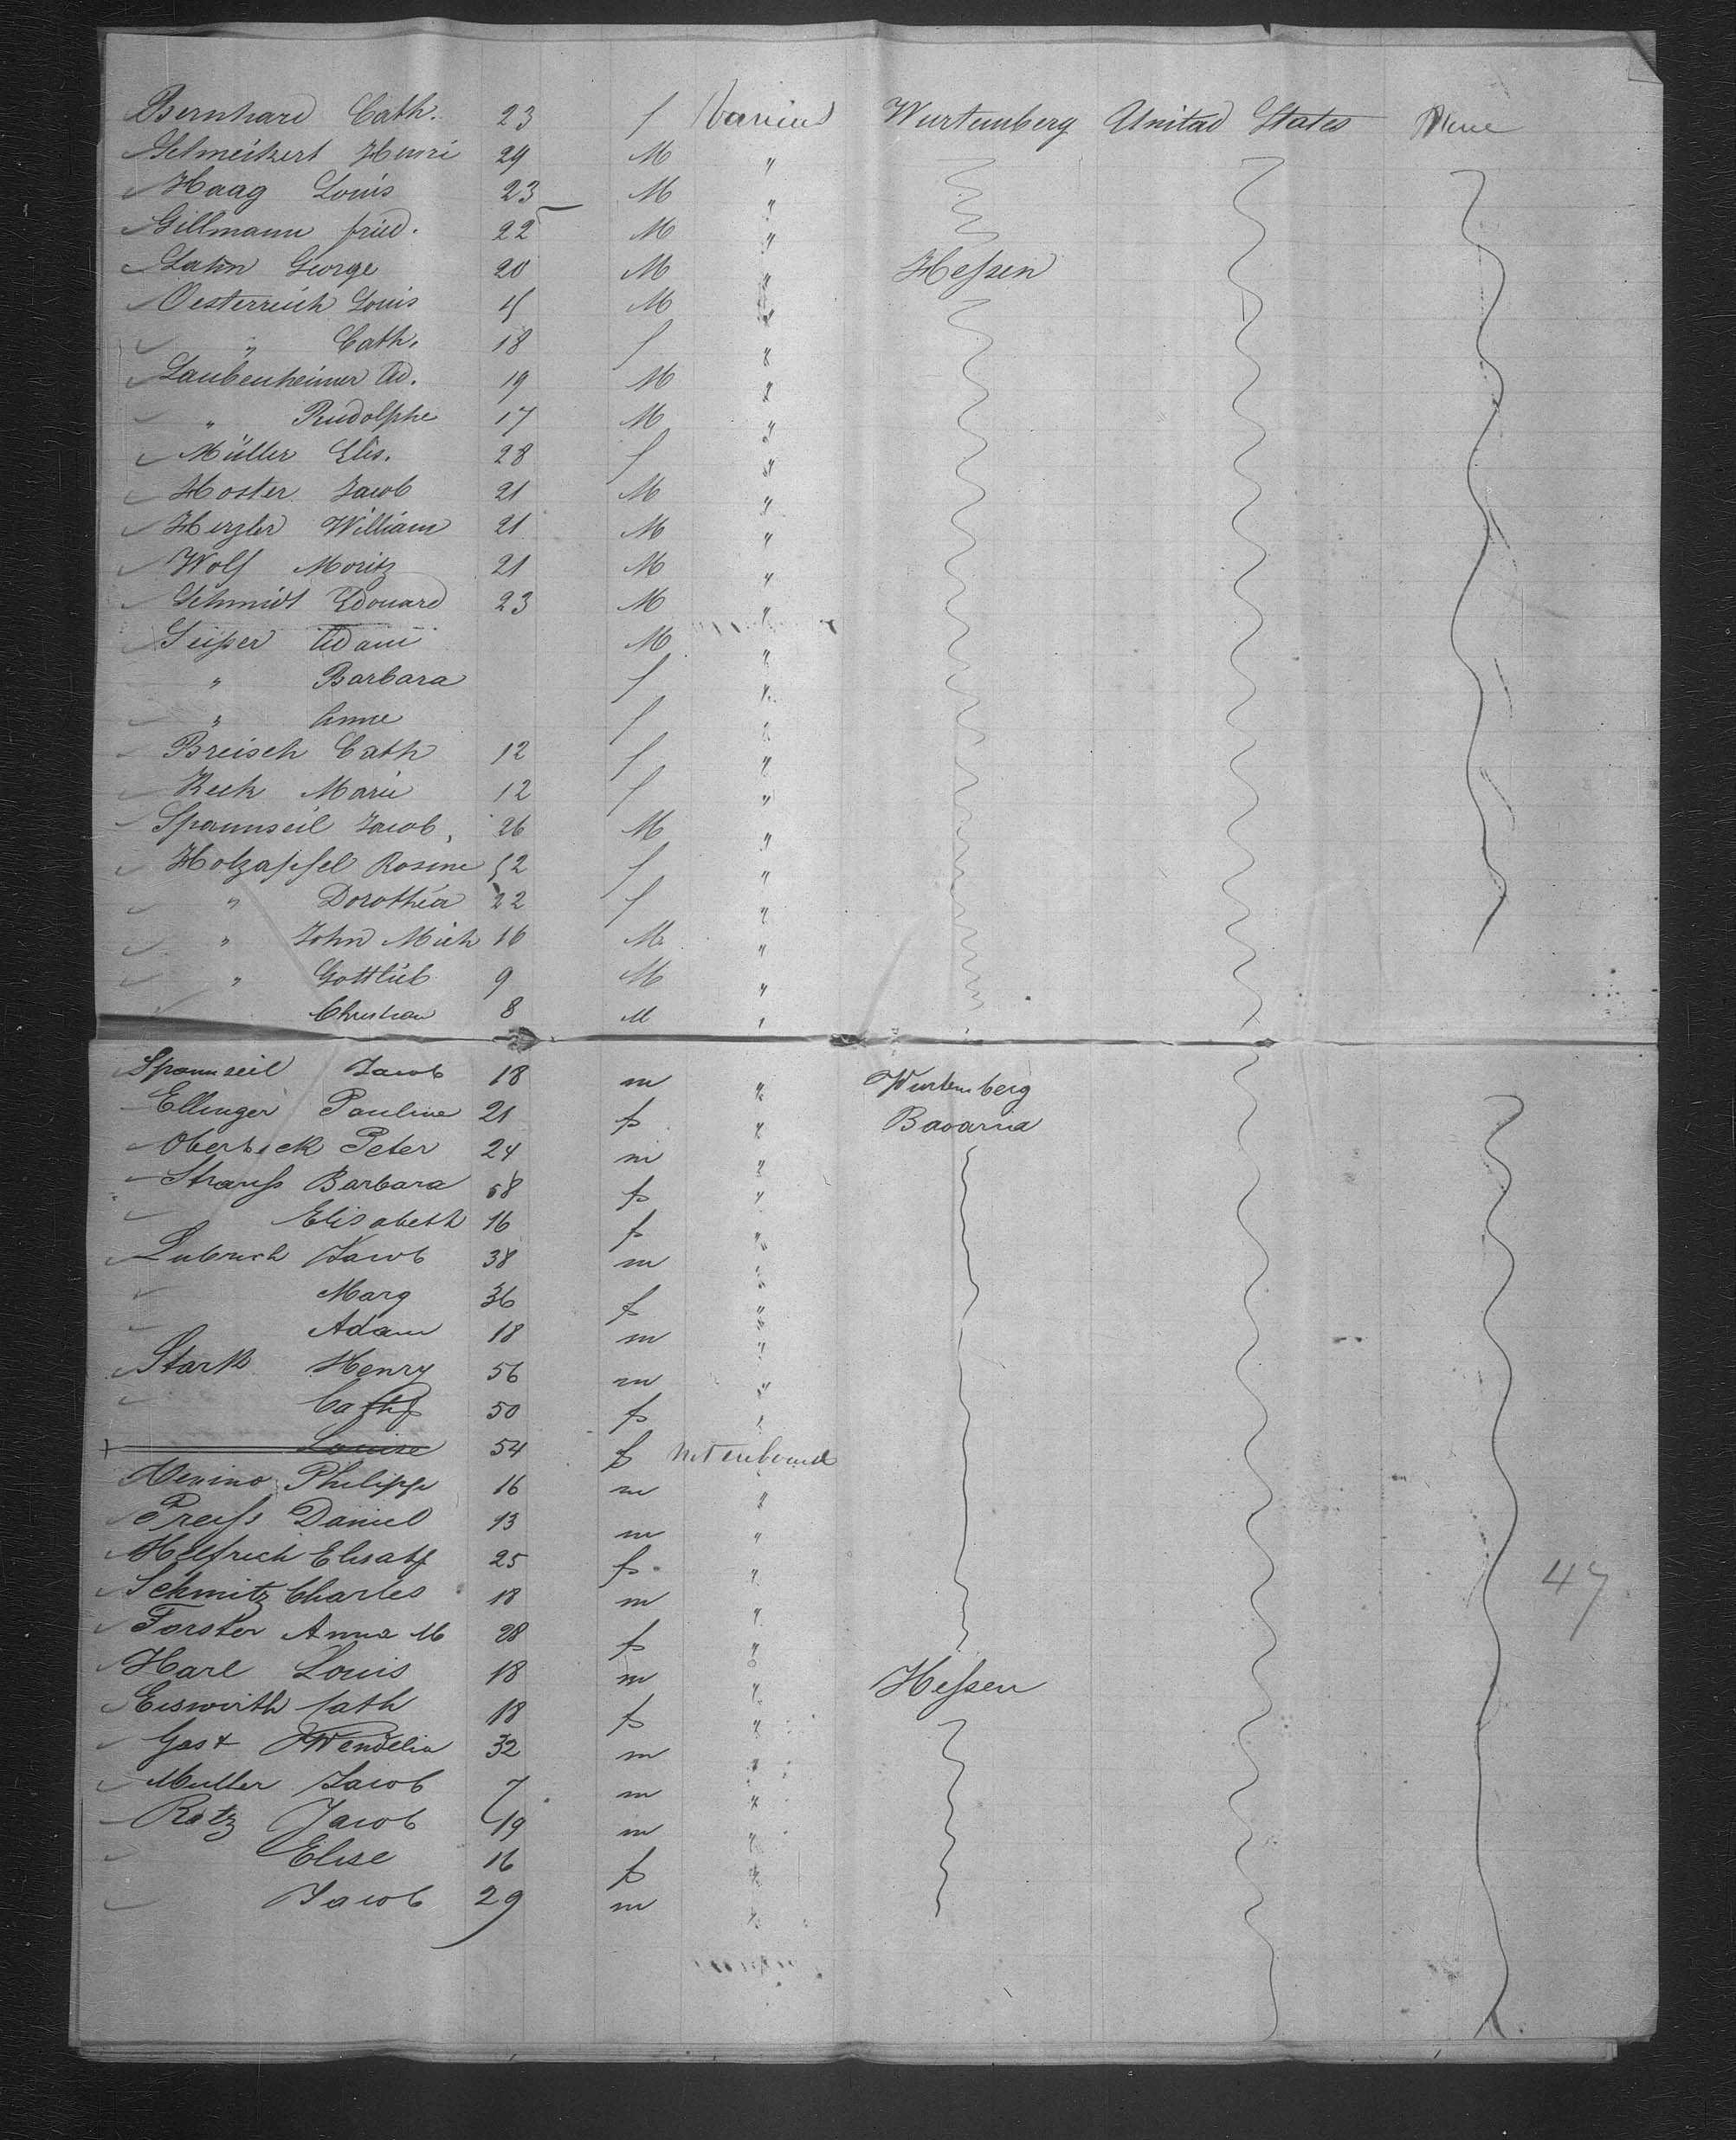 Bernhard Cath. 23 f Wurtemberg United States
Schmeitzert Henri 29 M "
Haag Louis 23 M "
Gillmann fried. 22 M "
Lahn George 20 M " Hessen
Oesterreich Louis 15 M "
" Cath. 18 f "
Laubenheimer Ad. 19 M "
" Rudolphe 17 M "
Müller Elis. 28 f "
Hoster Jacob 21 M "
Herzler William 21 M "
Wolf Moritz 21 M "
Schmidt Edouard 23 M "
Seisser Adam M "
" Barbara f "
" Anne f "
Breisch Cath 12 f "
Keck Marie 12 f "
Spannseil Jacob 26 M "
Holzapfel Rosine 52 f "
" Dorothea 22 f "
" John Mich 16 M "
" Gottlieb 9 M "
Christian 8 M "
Spannseil Jacob 18 m " Wurtemberg
Ellinger Pauline 21 f " Bavaria
Oberbeck Peter 24 m "
Strauss Barbara 58 f "
Elisabeth 16 f "
Lubrich Jacob 38 m "
Marg 36 f "
Adam 18 m "
Stark Henry 56 m "
Cath 50 f "
Louise 54 f not on board
Philippe 16 m "
Preiss Daniel 13 m "
Helfrich Elisath 25 f "
Schmitz Charles 18 m "
Forster Anna M 28 f "
Harl Louis 18 m " Hessen
Eiswirth Cath 18 f "
Gast Wendelin 32 m "
Muller Jacob 7 m "
Ratz Jacob 49 m "
Elise 16 f "
Jacob 29 m "
47